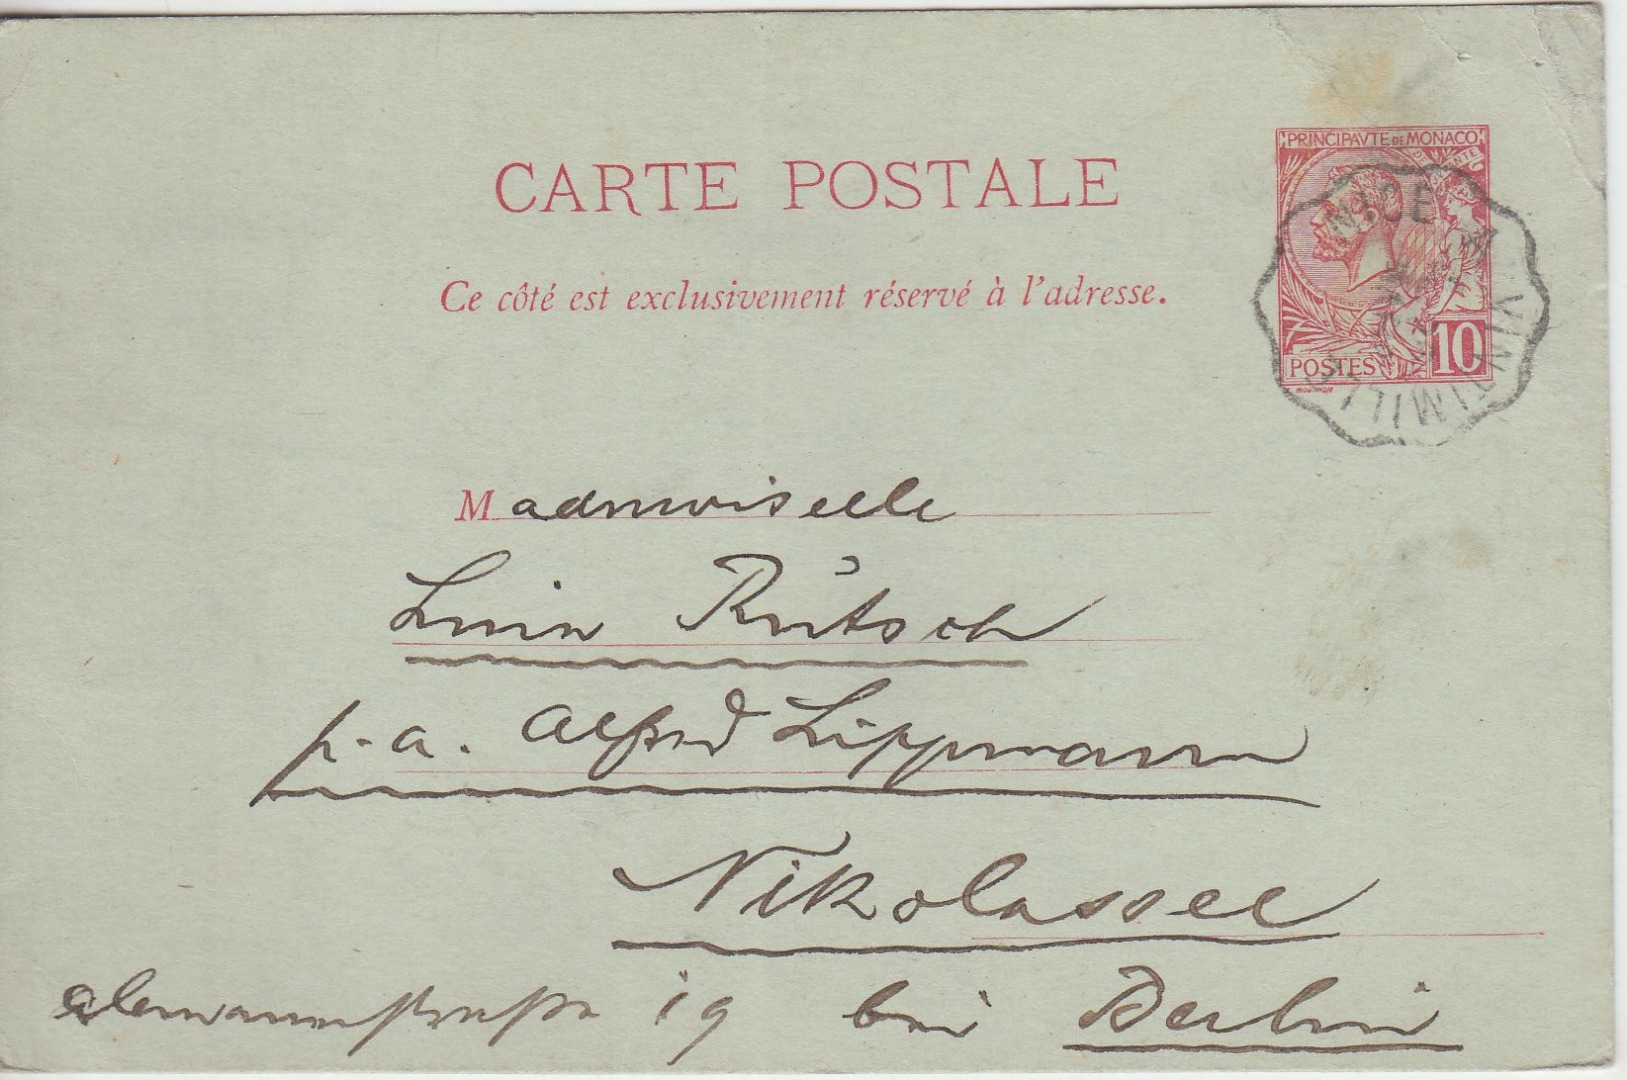 CARTE POSTALE
Ce côté est exclusivement réservé à l'adresse.
PRINCIPAVTE DE MONACO
POSTES 10
NICE A VINTIMILLE
Mademoiselle
Rütsch
p. a. Alfred Lippmann
Nikolassee
Alemannenstrasse 19 bei Berlin